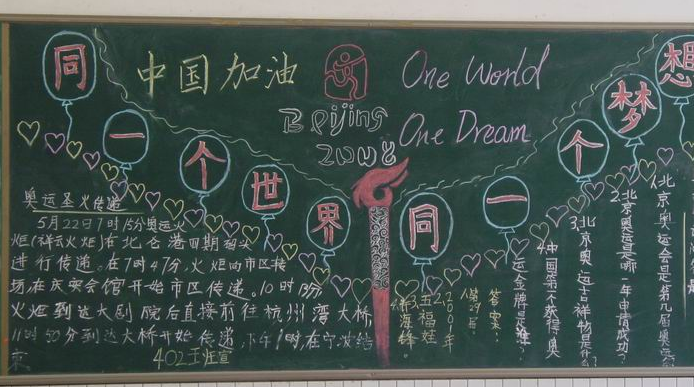 同一个世界
同一个梦想
中国加油
One World
One Dream
Beijing
2008
奥运圣火传递
5月22日7时15分奥运火
炬(祥云火炬)在北仑港四期码头
进行传递。在7时47分,火炬向市区转
场在庆安会馆开始市区传递。10时
火炬到达大剧院后直接前往杭州湾大桥
11时50分到达大桥开始传递.下午1时,在宁波结
束
402王烨萱
1.北京奥运会是第几届奥运会
2.北京奥运是哪一年申请成功?
3.北京奥运吉祥物是什么?
4.中国第一个获得奥
运金牌是谁?
答案:
1.第29届
2.2001年
3.五福娃
4.许海锋。